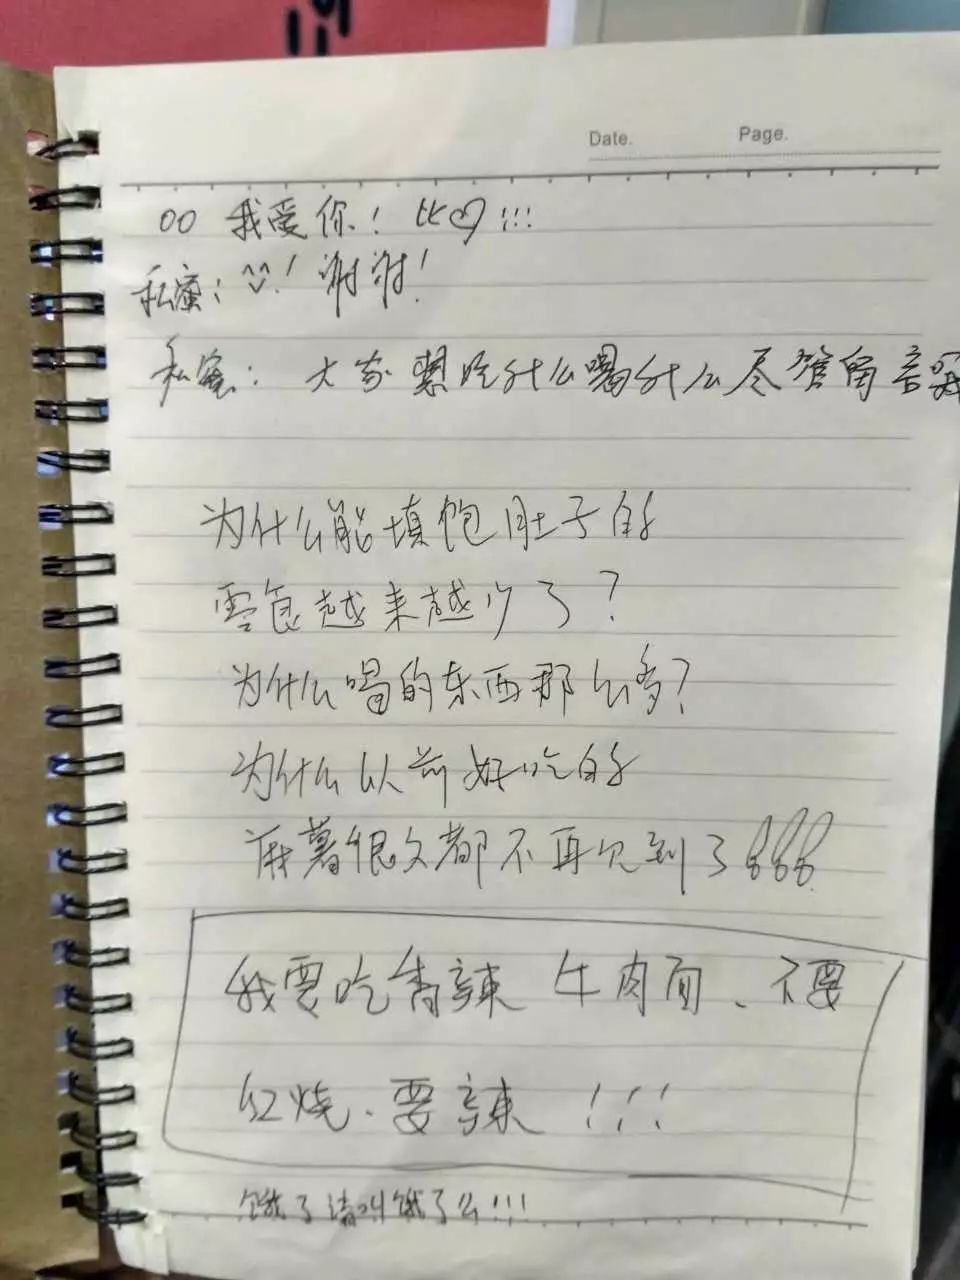 Date. Page.
OO 我爱你！比♡!!!
私蜜：^^！谢谢！
私蜜：大家想吃什么喝什么尽管留言
为什么能填饱肚子的
零食越来越少了？
为什么喝的东西那么多？
为什么以前好吃的
麻薯很久都不再见到了
我要吃香辣牛肉面、不要
红烧、要辣！！！
饿了请叫饿了么!!!